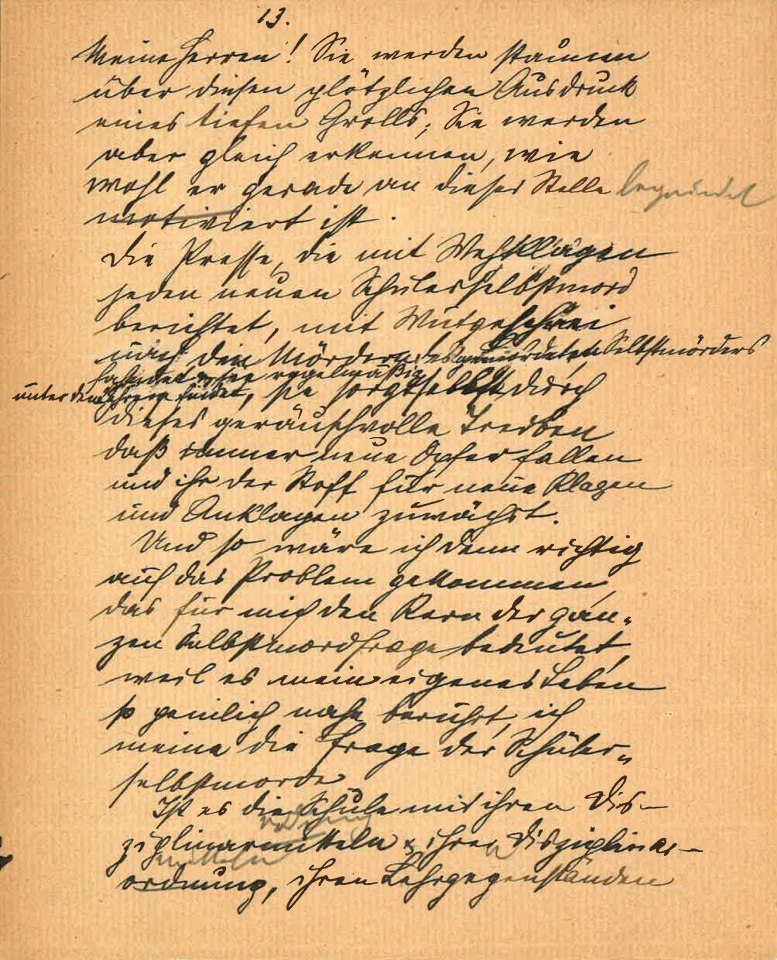 13.
Meine Herren! Sie werden staunen
über diesen plötzlichen Ausdruck
eines tiefen Grolls; Sie werden
aber gleich erkennen, wie
wohl er gerade an dieser Stelle begründet
motiviert ist.
Die Presse, die mit Wehklagen
jeden neuen Schülerselbstmord
berichtet, mit Wutgeschrei
nach den Mördern des gemordeten Selbstmörders
fahndet & sie regelmäßig
unter den Lehrern findet, sie sorgt selbst durch
dieses geräuschvolle Treiben
daß immer neue Opfer fallen
und ihr der Stoff für neue Klagen
und Anklagen zuwächst.
Und so wäre ich denn richtig
auf das Problem gekommen,
das für mich den Kern der gan-
zen Selbstmordfrage bedeutet,
weil es mein eigenes Leben
so peinlich nahe berührt, ich
meine die Frage der Schüler-
selbstmorde
Ist es die Schule mit ihren Dis-
ordnung
ziplinarmitteln & ihrer Disziplinar-
mitteln
ordnung, ihren Lehrgegenständen